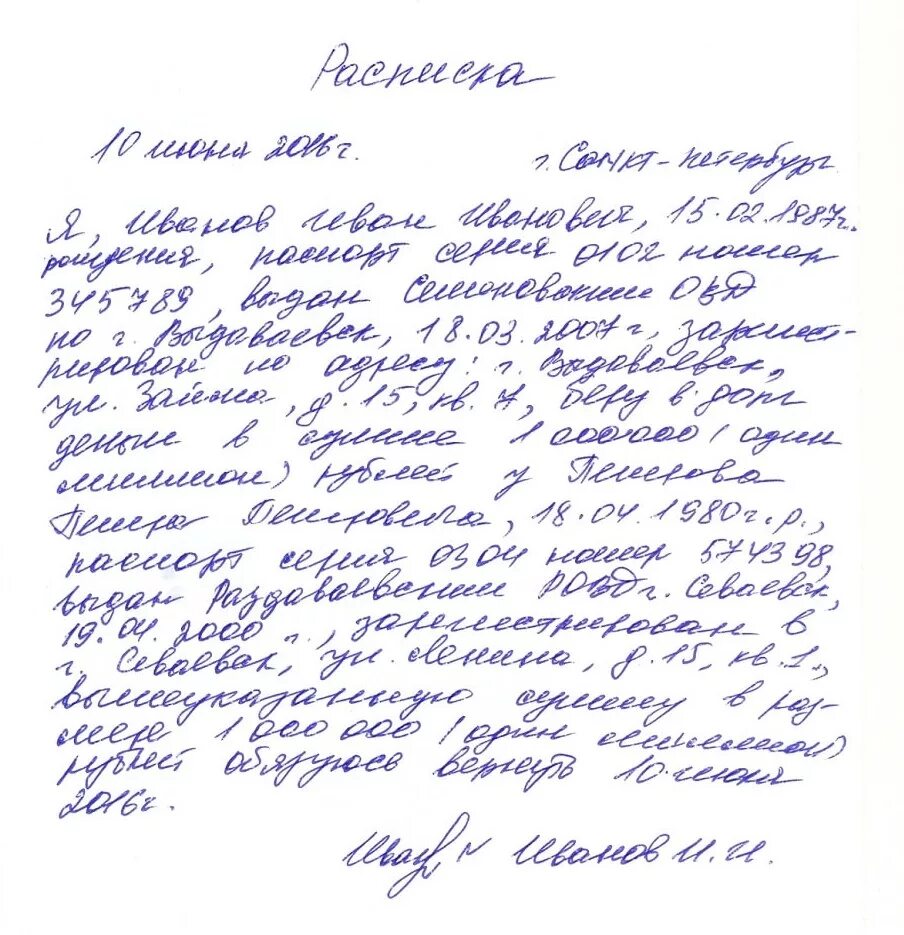 Расписка
10 июня 2016г.
г. Санкт-Петербург
Я, Иванов Иван Иванович, 15.02.1987г.
рождения, паспорт серия 0102 номер
345789, выдан Семеновским ОВД
по г. Выдаваевск, 18.03.2007г, зарегист-
рирован по адресу: г. Выдаваевск,
ул. Займа, д.15, кв. 7, беру в долг
деньги в сумме 1 000000 (один
миллион) рублей у Петрова
Петра Петровича, 18.04.1980г.р.,
паспорт серия 0304 номер 574398,
выдан Раздаваевским РОВД г. Севаевск,
19.04.2000 г., зарегистрирован в
г. Севаевск, ул. Ленина, д.15, кв.1.,
вышеуказанную сумму в раз-
мере 1 000 000 (один миллион)
рублей обязуюсь вернуть 10 июня
2016г.
Иванов И.И.